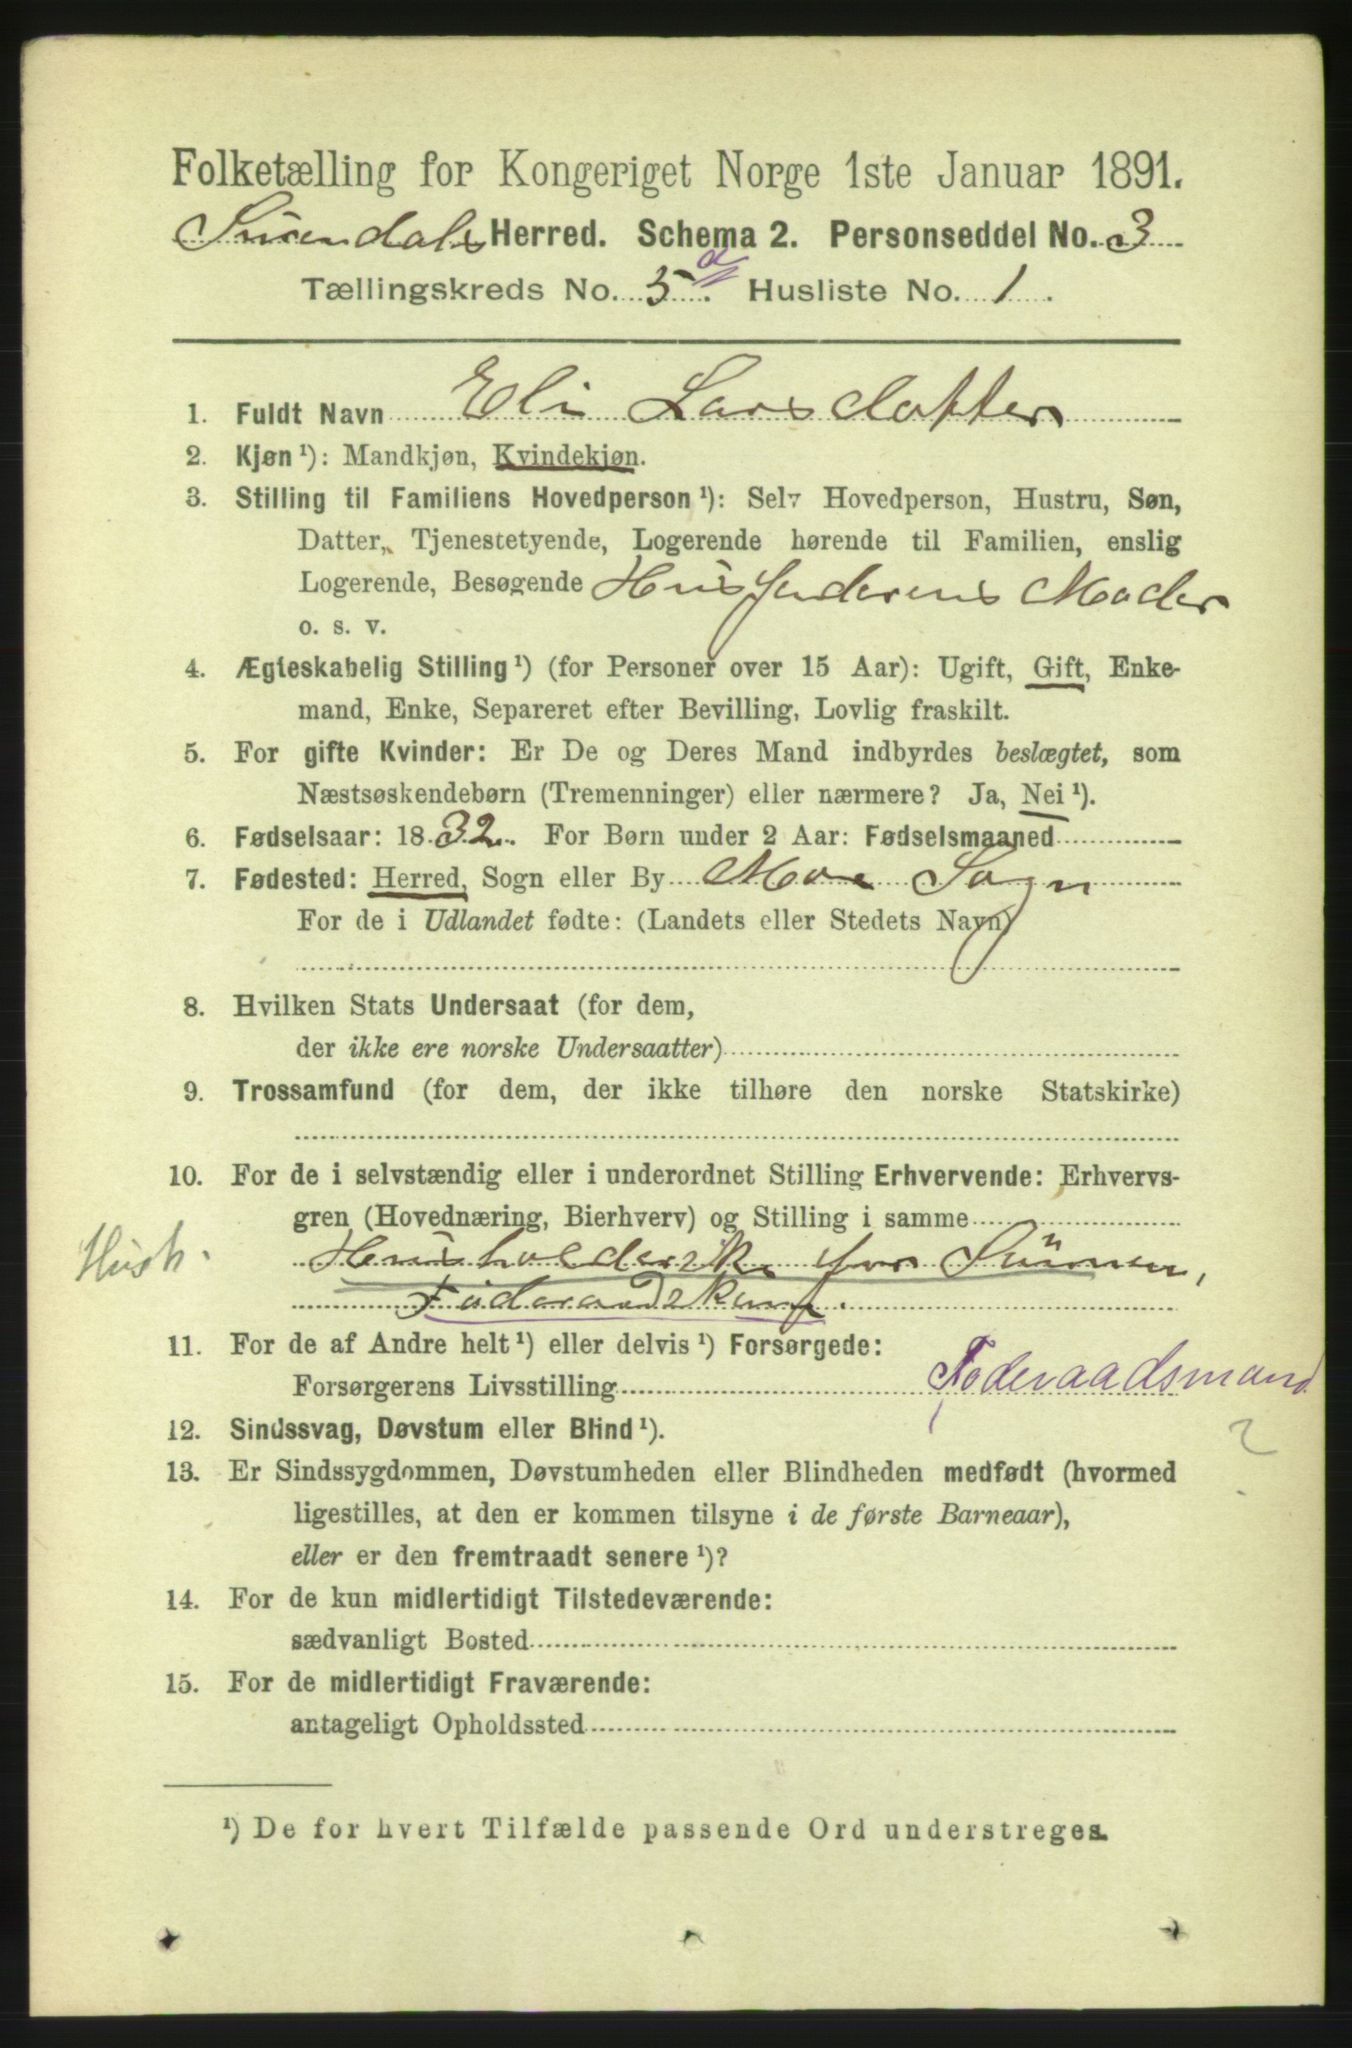 Folketælling for Kongeriget Norge 1ste Januar 1891.
Surendals Herred. Schema 2. Personseddel No. 3
Tællingskreds No. 5d. Husliste No. 1.
1. Fuldt Navn Eli Larsdatter
2. Kjøn ¹): Mandkjøn, Kvindekjøn.
3. Stilling til Familiens Hovedperson ¹): Selv Hovedperson, Hustru, Søn,
Datter, Tjenestetyende, Logerende hørende til Familien, enslig
Logerende, Besøgende Husfaderens Moder
o. s. v.
4. Ægteskabelig Stilling ¹) (for Personer over 15 Aar): Ugift, Gift, Enke-
mand, Enke, Separeret efter Bevilling, Lovlig fraskilt.
5. For gifte Kvinder: Er De og Deres Mand indbyrdes beslægtet, som
Næstsøskendebørn (Tremenninger) eller nærmere? Ja, Nei ¹).
6. Fødselsaar: 1832. For Børn under 2 Aar: Fødselsmaaned
7. Fødested: Herred, Sogn eller By Moe Sogn
For de i Udlandet fødte: (Landets eller Stedets Navn)
8. Hvilken Stats Undersaat (for dem,
der ikke ere norske Undersaatter)
9. Trossamfund (for dem, der ikke tilhøre den norske Statskirke)
10. For de i selvstændig eller i underordnet Stilling Erhvervende: Erhvervs-
gren (Hovednæring, Bierhverv) og Stilling i samme
Hush. Husholderske for Sønnen,
Føderaadskone.
11. For de af Andre helt ¹) eller delvis ¹) Forsørgede:
Forsørgerens Livsstilling Føderaadsmand
12. Sindssvag, Døvstum eller Blind ¹). 2
13. Er Sindssygdommen, Døvstumheden eller Blindheden medfødt (hvormed
ligestilles, at den er kommen tilsyne i de første Barneaar),
eller er den fremtraadt senere ¹)?
14. For de kun midlertidigt Tilstedeværende:
sædvanligt Bosted
15. For de midlertidigt Fraværende:
antageligt Opholdssted
¹) De for hvert Tilfælde passende Ord understreges.